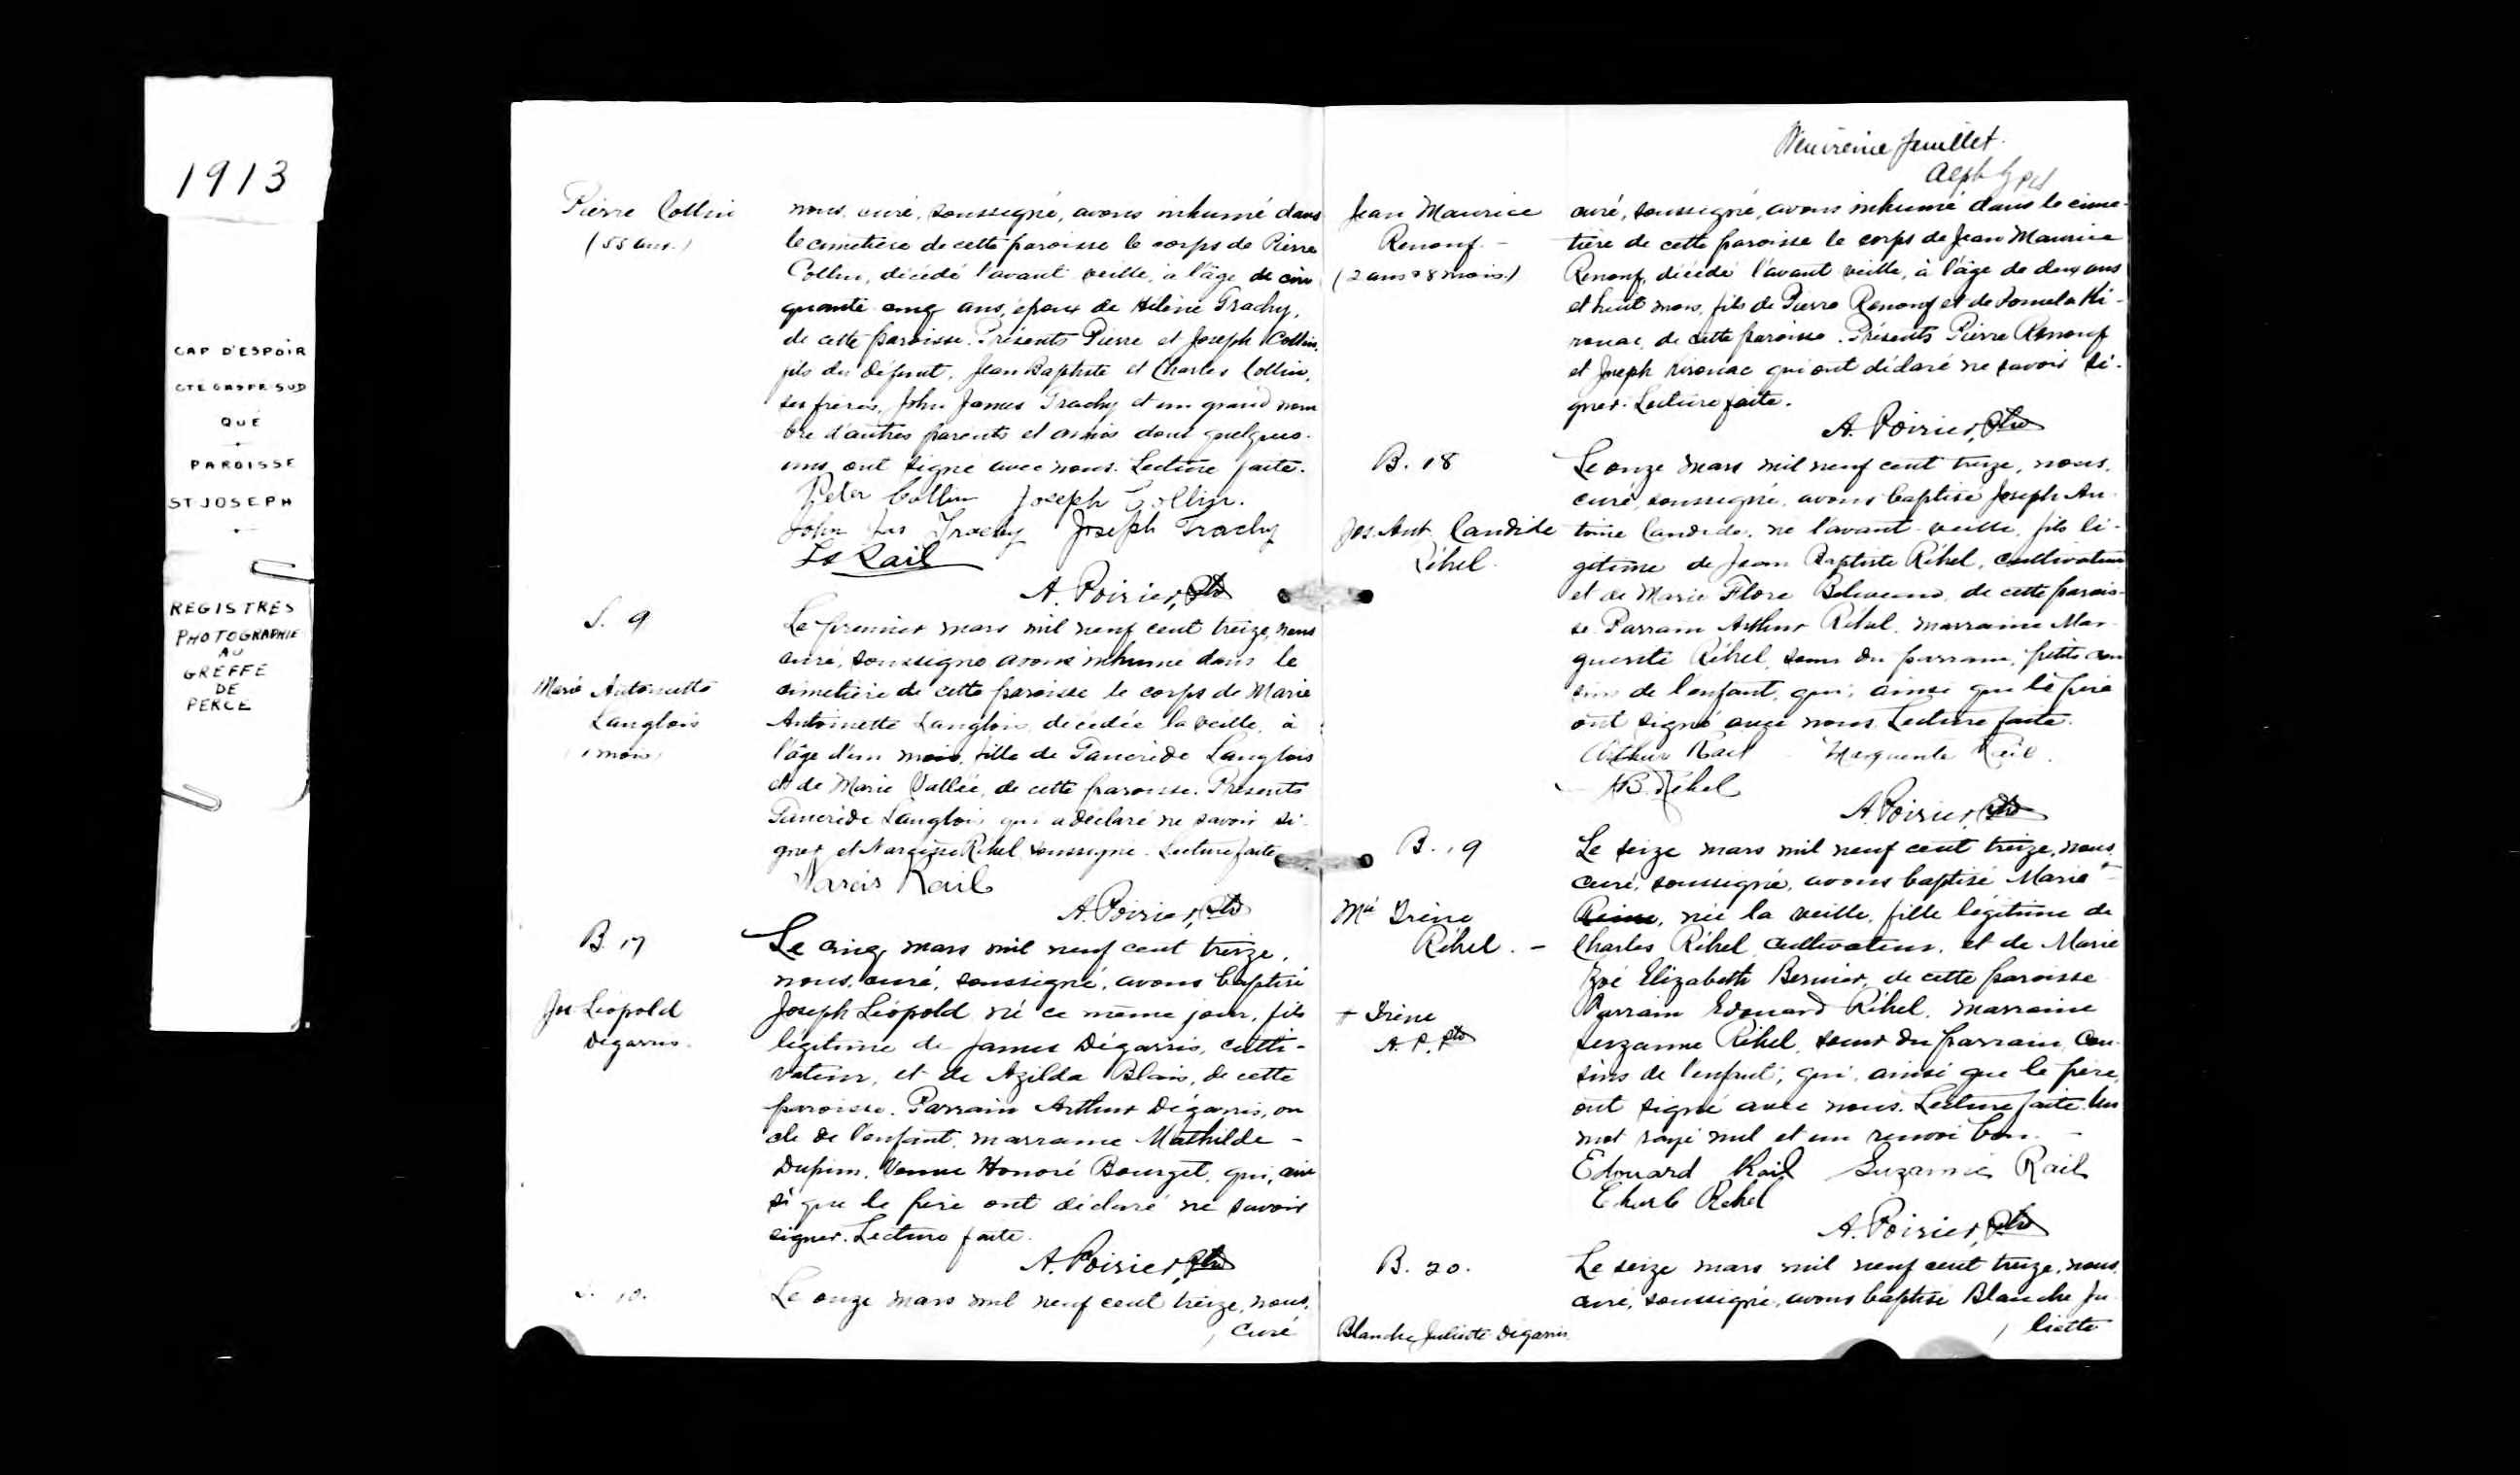 1913
CAP D'ESPOIR
CTÉ GASPÉ SUD
QUÉ
PAROISSE
ST JOSEPH
REGISTRES
PHOTOGRAPHIE
AU
GREFFE
DE
PERCÉ
Pierre Collin
(55 ans.)
nous, curé, soussigné, avons inhumé dans
le cimetière de cette paroisse le corps de Pierre
Collin, décédé l'avant veille, à l'âge de cin
quante cinq ans, époux de Hélène Trachy,
de cette paroisse. Présents Pierre et Joseph Collin,
fils du défunt, Jean Baptiste et Charles Collin,
ses frères, John James Trachy et un grand nom
bre d'autres parents et amis dont quelques-
uns ont signé avec nous. Lecture faite.
Peter Collin Joseph Collin.
John Jas Trachy Joseph Trachy
Rail
A. Poirier, Ptre
S. 9
Marie Antoinette
Langlois
1 mois
Le premier mars mil neuf cent treize, nous
curé, soussigné avons inhumé dans le
cimetière de cette paroisse le corps de Marie
Antoinette Langlois, décédée la veille, à
l'âge d'un mois, fille de Tancrède Langlois
et de Marie Vallée, de cette paroisse. Présents
Tancrède Langlois qui a déclaré ne savoir si-
gner et Narcisse Réhel, soussigné. Lecture faite
Narcis Rail
A. Poirier, Ptre
B. 17
Jos Léopold
Dégarris.
Le cinq mars mil neuf cent treize,
nous, curé, soussigné, avons baptisé
Joseph Léopold né ce même jour, fils
légitime de James Dégarris, culti-
vateur, et de Azilda Blais, de cette
paroisse. Parrain Arthur Dégarris, on
cle de l'enfant, marraine Mathilde -
Dupuis, Honoré Bourget, qui, ain
si que le père ont déclaré ne savoir
signer. Lecture faite.
A. Poirier, Ptre
S. 10.
Le onze mars mil neuf cent treize, nous,
curé
Neuvième feuillet.
Jean Maurice
Renouf. -
(2 ans & 8 mois.)
curé, soussigné, avons inhumé dans le cime-
tière de cette paroisse le corps de Jean Maurice
Renouf, décédé l'avant veille, à l'âge de deux ans
et huit mois, fils de Pierre Renouf et de Ki-
rouac, de cette paroisse. Présents Pierre Renouf
et Joseph Kirouac qui ont déclaré ne savoir si-
gner. Lecture faite.
A. Poirier, Ptre
B. 18
Jos. Ant. Candide
Réhel.
Le onze mars mil neuf cent treize, nous,
curé, soussigné, avons baptisé Joseph An-
toine Candide, né l'avant-veille, fils lé-
gitime de Jean Baptiste Réhel, cultivateur
et de Marie Flore de cette parois-
se. Parrain Arthur Réhel, marraine Mar-
guerite Réhel, soeur du parrain, petits cou
sins de l'enfant, qui, ainsi que le père
ont signé avec nous. Lecture faite.
Arthur Rail Marguerite Rail.
J.B. Réhel
A. Poirier, Ptre
B. 19
Mie Irène
Réhel. -
+ Irène
A. P. Ptre
Le seize mars mil neuf cent treize, nous,
curé, soussigné, avons baptisé Marie +
Reine, née la veille, fille légitime de
Charles Réhel, cultivateur, et de Marie
Zoé Elizabeth Bernier, de cette paroisse
Parrain Edouard Réhel, marraine
Suzanne Réhel, soeur du parrain, cou-
sins de l'enfant, qui, ainsi que le père,
ont signé avec nous. Lecture faite. Un
mot rayé nul et un renvoi bon. -
Edouard Rail Suzanne Rail
Charle Rehel
A. Poirier, Ptre
B. 20.
Blanche Juliette Dégarris
Le seize mars mil neuf cent treize, nous,
curé, soussigné, avons baptisé Blanche Ju
liette